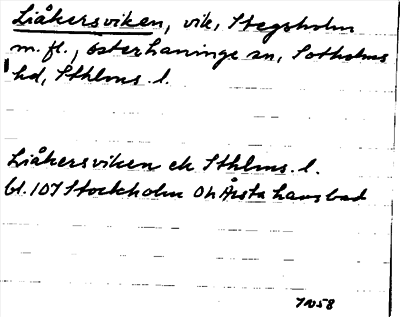 Liåkersviken, vik, Stegsholm
m. fl., österhaninge sn, Sotholms
hd, Sthlms. l.
Liåkersviken ek Sthlms. l.
bl. 107 Stockholm Oh Årsta havsbad
1958